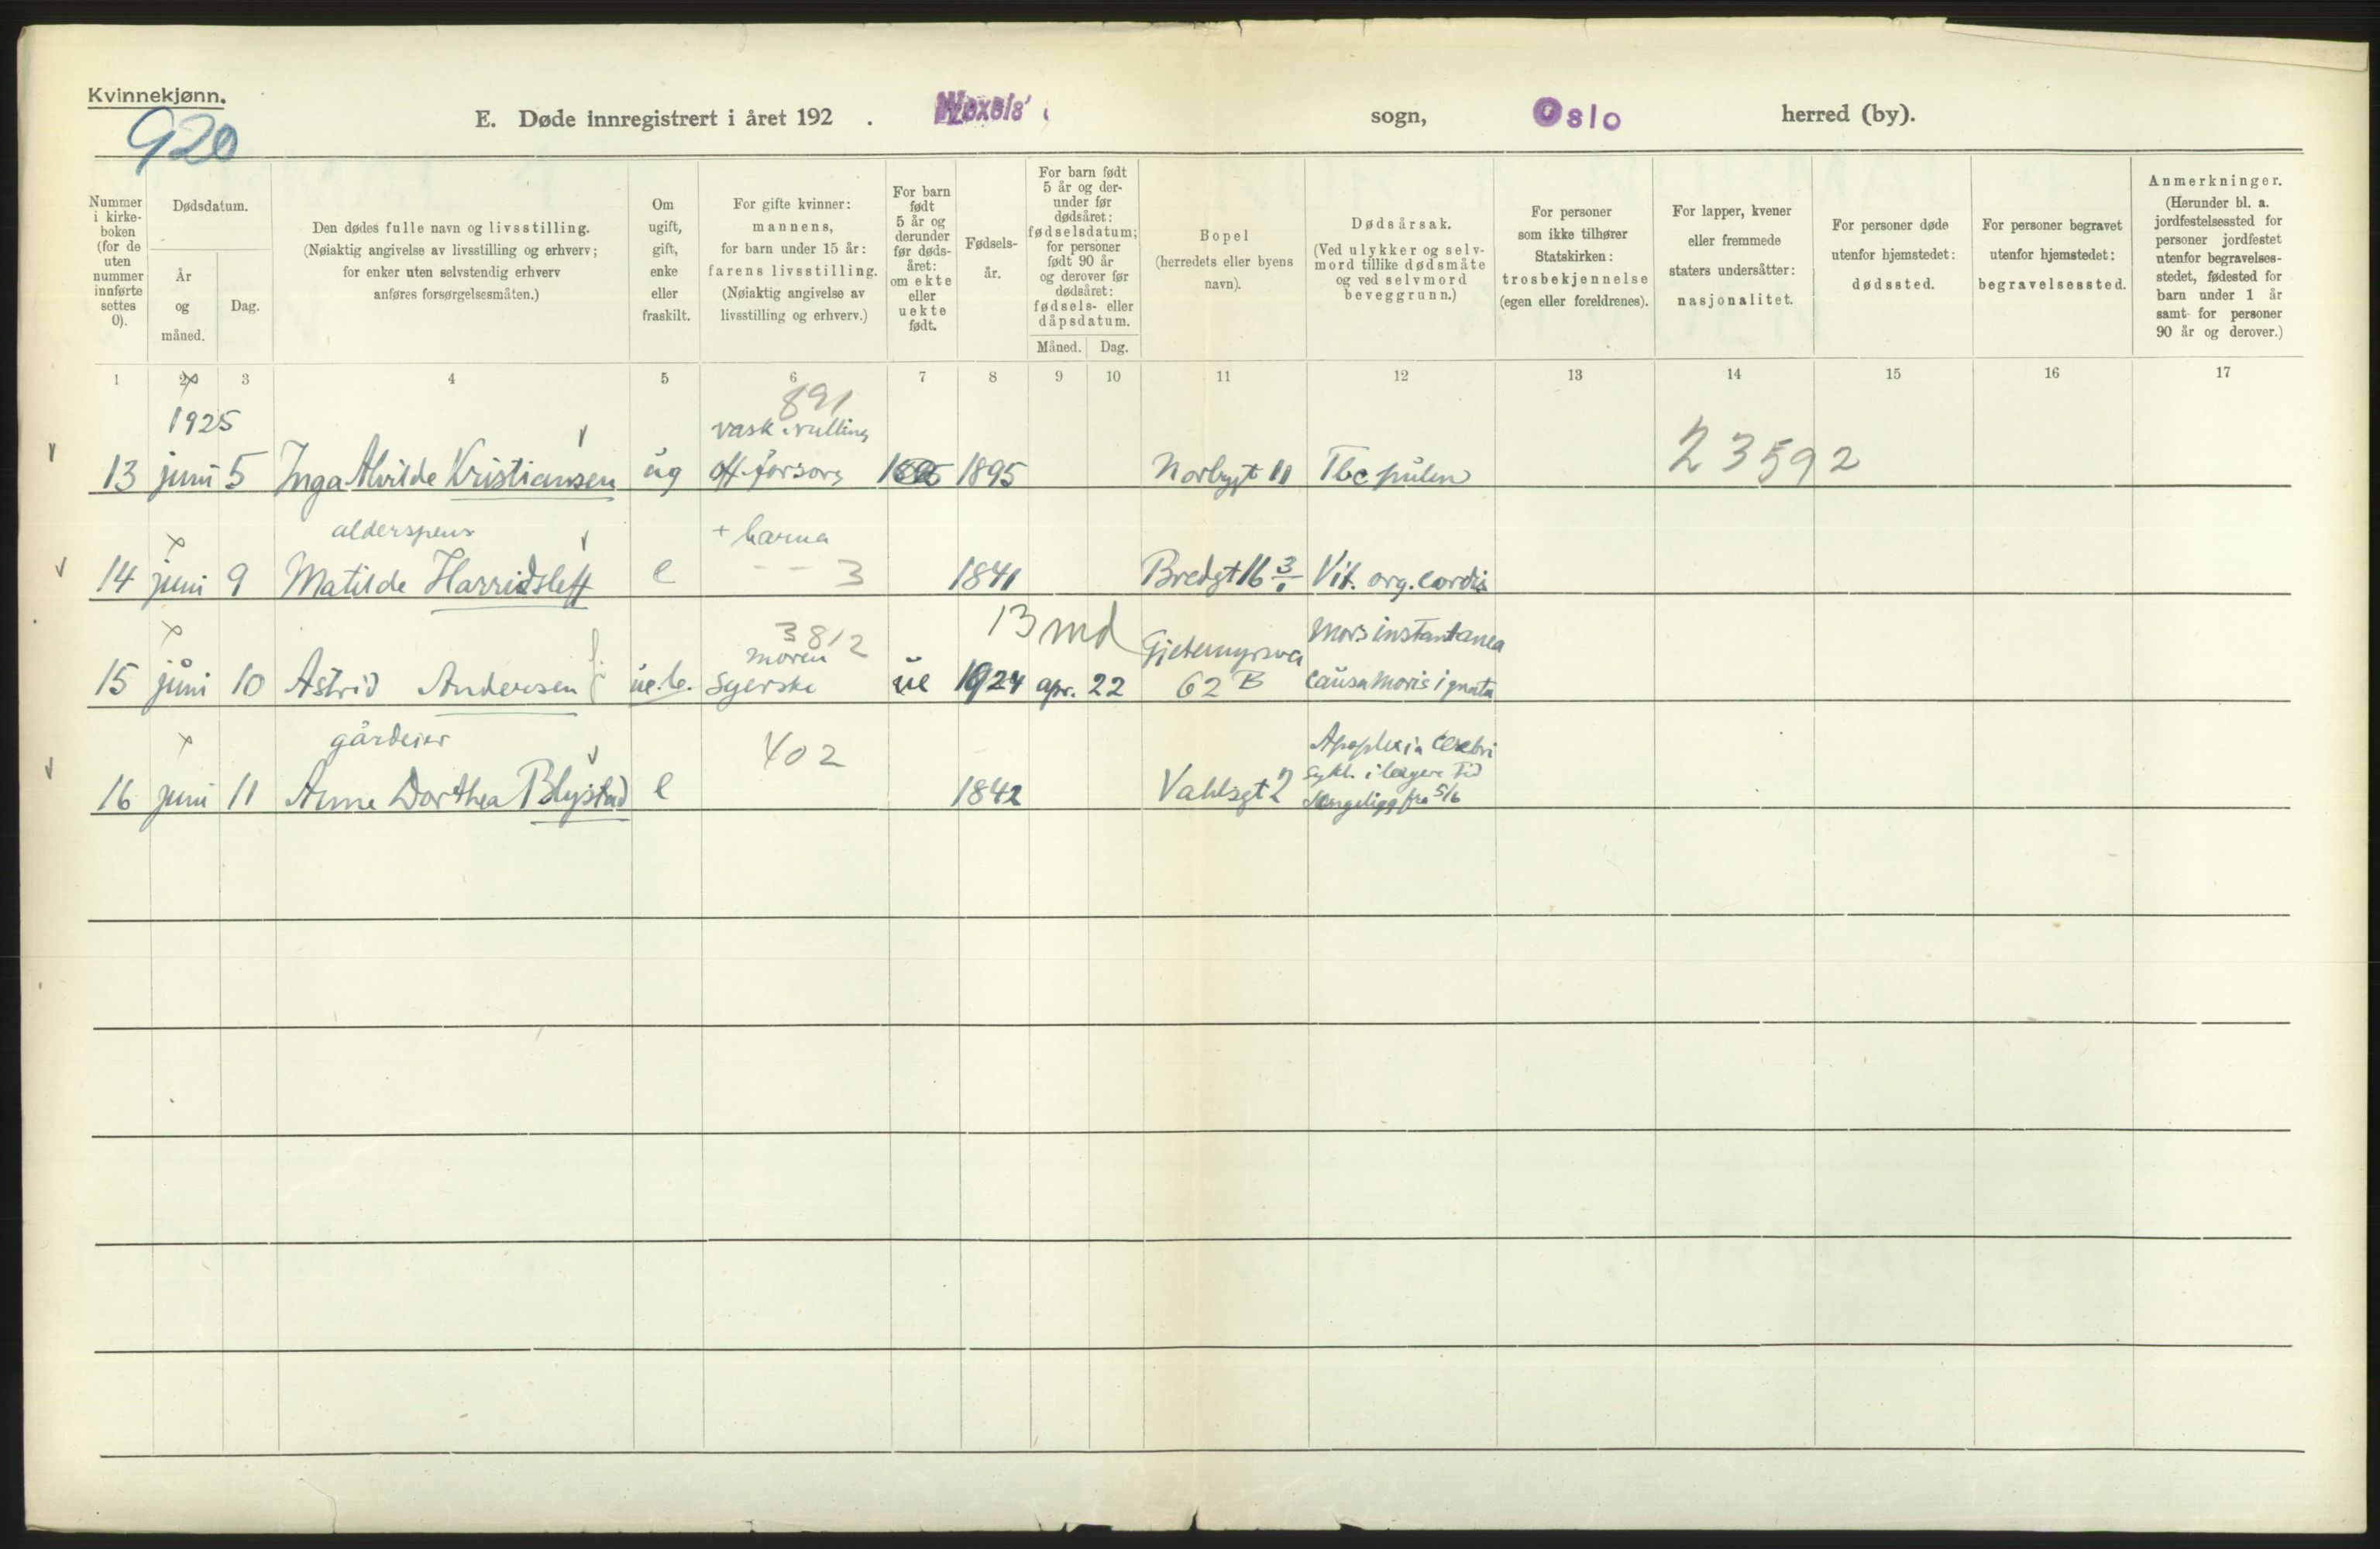 Kvinnekjønn.
920
E. Døde innregistrert i året 192 . Wexels' sogn, Oslo herred (by).
Nummer i kirke-boken (for de uten nummer innførte settes 0).
Dødsdatum.
År og måned.
Dag.
Den dødes fulle navn og livsstilling.
(Nøiaktig angivelse av livsstilling og erhverv;
for enker uten selvstendig erhverv
anføres forsørgelsesmåten.)
Om ugift, gift, enke eller fraskilt.
For gifte kvinner:
mannens,
for barn under 15 år:
farens livsstilling.
(Nøiaktig angivelse av
livsstilling og erhverv.)
For barn født 5 år og derunder før døds-året: om ekte eller uekte født.
Fødsels-år.
For barn født 5 år og der-under før dødsåret: fødselsdatum; for personer født 90 år og derover før dødsåret: fødsels- eller dåpsdatum.
Måned.
Dag.
Bopel
(herredets eller byens
navn).
Dødsårsak.
(Ved ulykker og selv-
mord tillike dødsmåte
og ved selvmord
beveggrunn.)
For personer
som ikke tilhører
Statskirken:
trosbekjennelse
(egen eller foreldrenes).
For lapper, kvener
eller fremmede
staters undersåtter:
nasjonalitet.
For personer døde
utenfor hjemstedet:
dødssted.
For personer begravet
utenfor hjemstedet:
begravelsessted.
Anmerkninger.
(Herunder bl. a.
jordfestelsessted for
personer jordfestet
utenfor begravelses-
stedet, fødested for
barn under 1 år
samt for personer
90 år og derover.)
1 2 3 4 5 6 7 8 9 10 11 12 13 14 15 16 17
1925
891
vask. rulling
13 juni 5 Inga Alvilde Kristiansen ug off. forsorg 1895 Norbygt 11 Tbc pulm 23592
alderspens + barna
14 juni 9 Matilde Harridsleff e - - 3 1841 Bredgt 16 3/1 Vit. org. cordis
3812 13 md
moren Gjetemyrsvei Mors instantanea
15 juni 10 Astrid Andersen ue. b. syerske ue 1924 apr. 22 62 B causa moris ignota
gårdeier 402 Apoplexia cerebri
sykl. i længere tid
16 juni 11 Anne Dorthea Blystad e 1842 Vahlsgt 2 Sengeligg fra 5/6